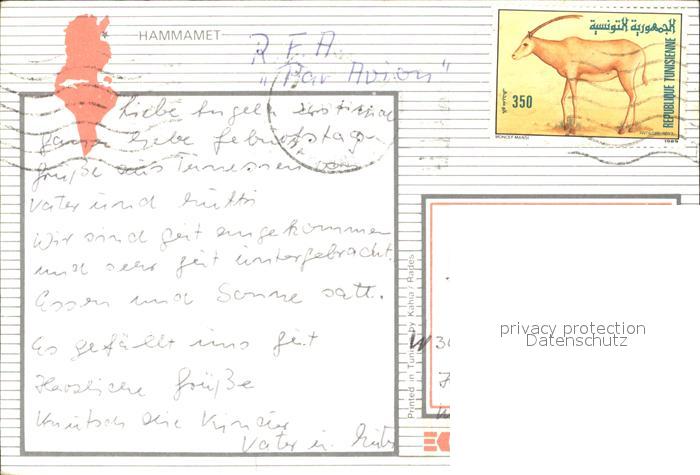 HAMMAMET
R.F.A.
"Par Avion"
الجمهورية التونسية
REPUBLIQUE TUNISIENNE
350
MONCEF MANSI
1989
Liebe Angela erst mal
ganz liebe Geburtstags
grüße aus Tunessien von
Vater und Mutti
Wir sind gut angekommen
und sehr gut untergebracht.
Essen und Sonne satt.
Es gefällt uns gut
Herzliche Grüße
Knutsch die Kinder
Vater u. Mutti
Printed in Tunisia by Kahia / Rades
W 30
privacy protection
Datenschutz